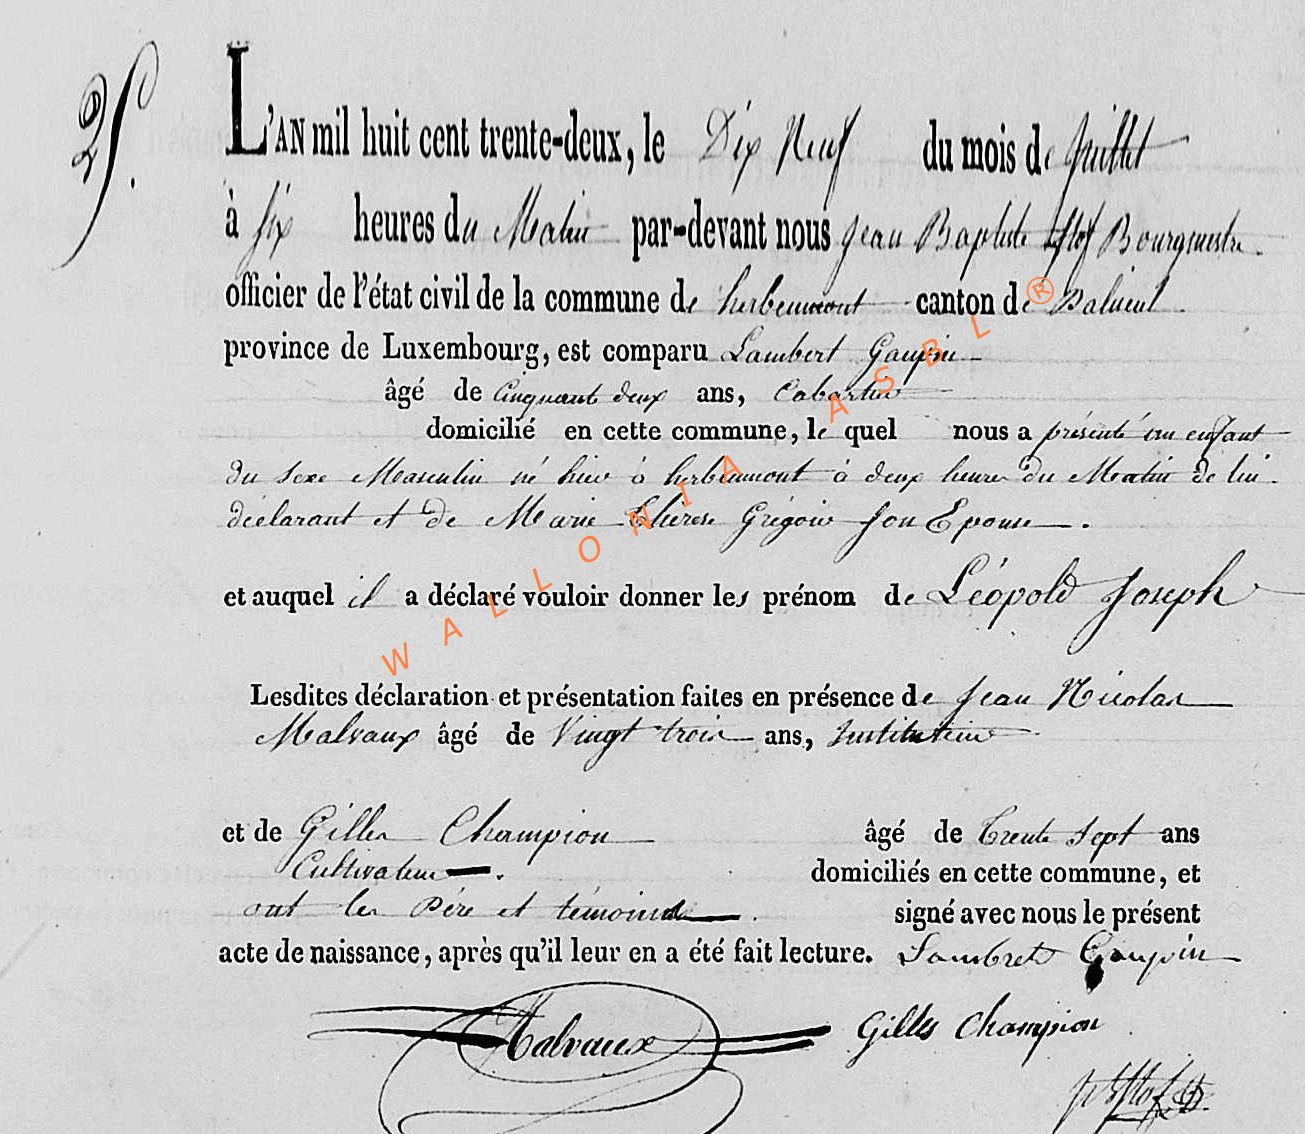 L'AN mil huit cent trente-deux, le Dix Neuf du mois de Juillet
à six heures du Matin par-devant nous Jean Baptiste Bourguestre
officier de l'état civil de la commune de herbeumont canton de
province de Luxembourg, est comparu Lambert Goupin
âgé de Cinquante deux ans, Cabartier
domicilié en cette commune, le quel nous a présenté un enfant
du sexe Masculin né hier à herbeumont à deux heures du Matin de lui
déclarant et de Marie Thérese Grégoire son Epouse.
et auquel il a déclaré vouloir donner les prénom de Léopold Joseph
Lesdites déclaration et présentation faites en présence de Jean Nicolas
Malvaux âgé de Vingt trois ans, Instituteur
et de Gilles Champion âgé de Trente Sept ans
Cultivateur. domiciliés en cette commune, et
ont les Père et témoins. signé avec nous le présent
acte de naissance, après qu'il leur en a été fait lecture. Lambret Goupin
Malvaux Gilles Champion
WALLONIA ASBL ®